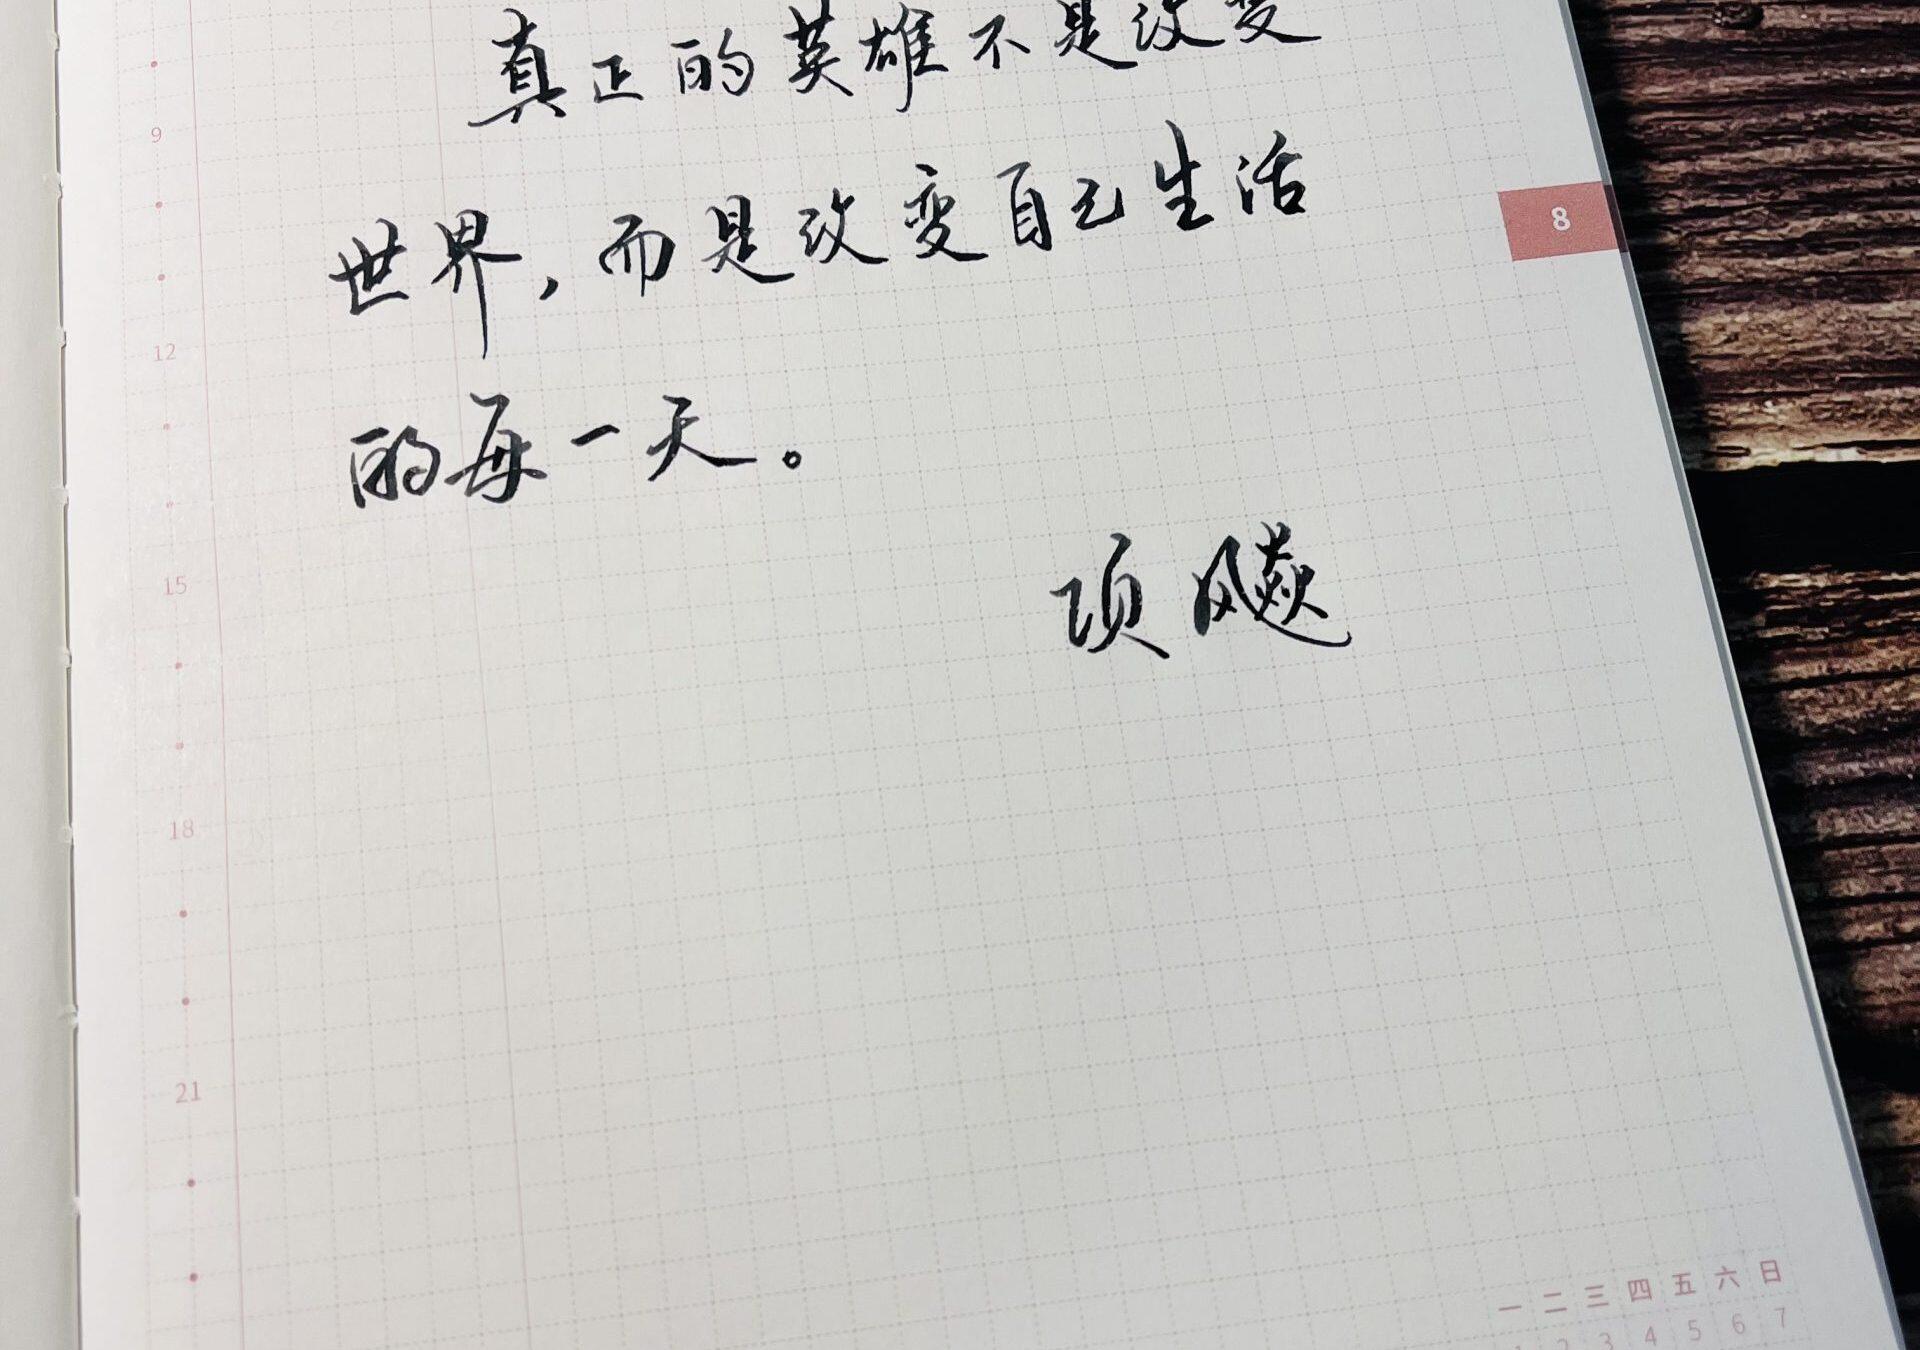 真正的英雄不是改变
9
世界，而是改变自己生活
8
12
的每一天。
15
项飚
18
21
一 二 三 四 五 六 日
1 2 3 4 5 6 7